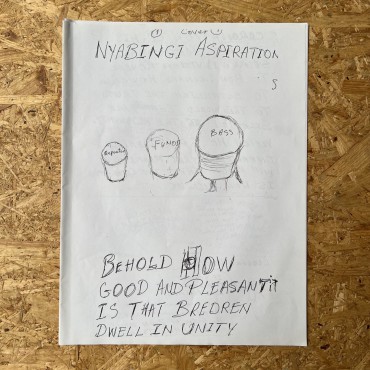 ① Cover
NYABINGI ASPIRATION
S
Repeater
FUNDE
BASS
BEHOLD HOW
GOOD AND PLEASANT it
IS THAT BREDREN
DWELL IN UNITY